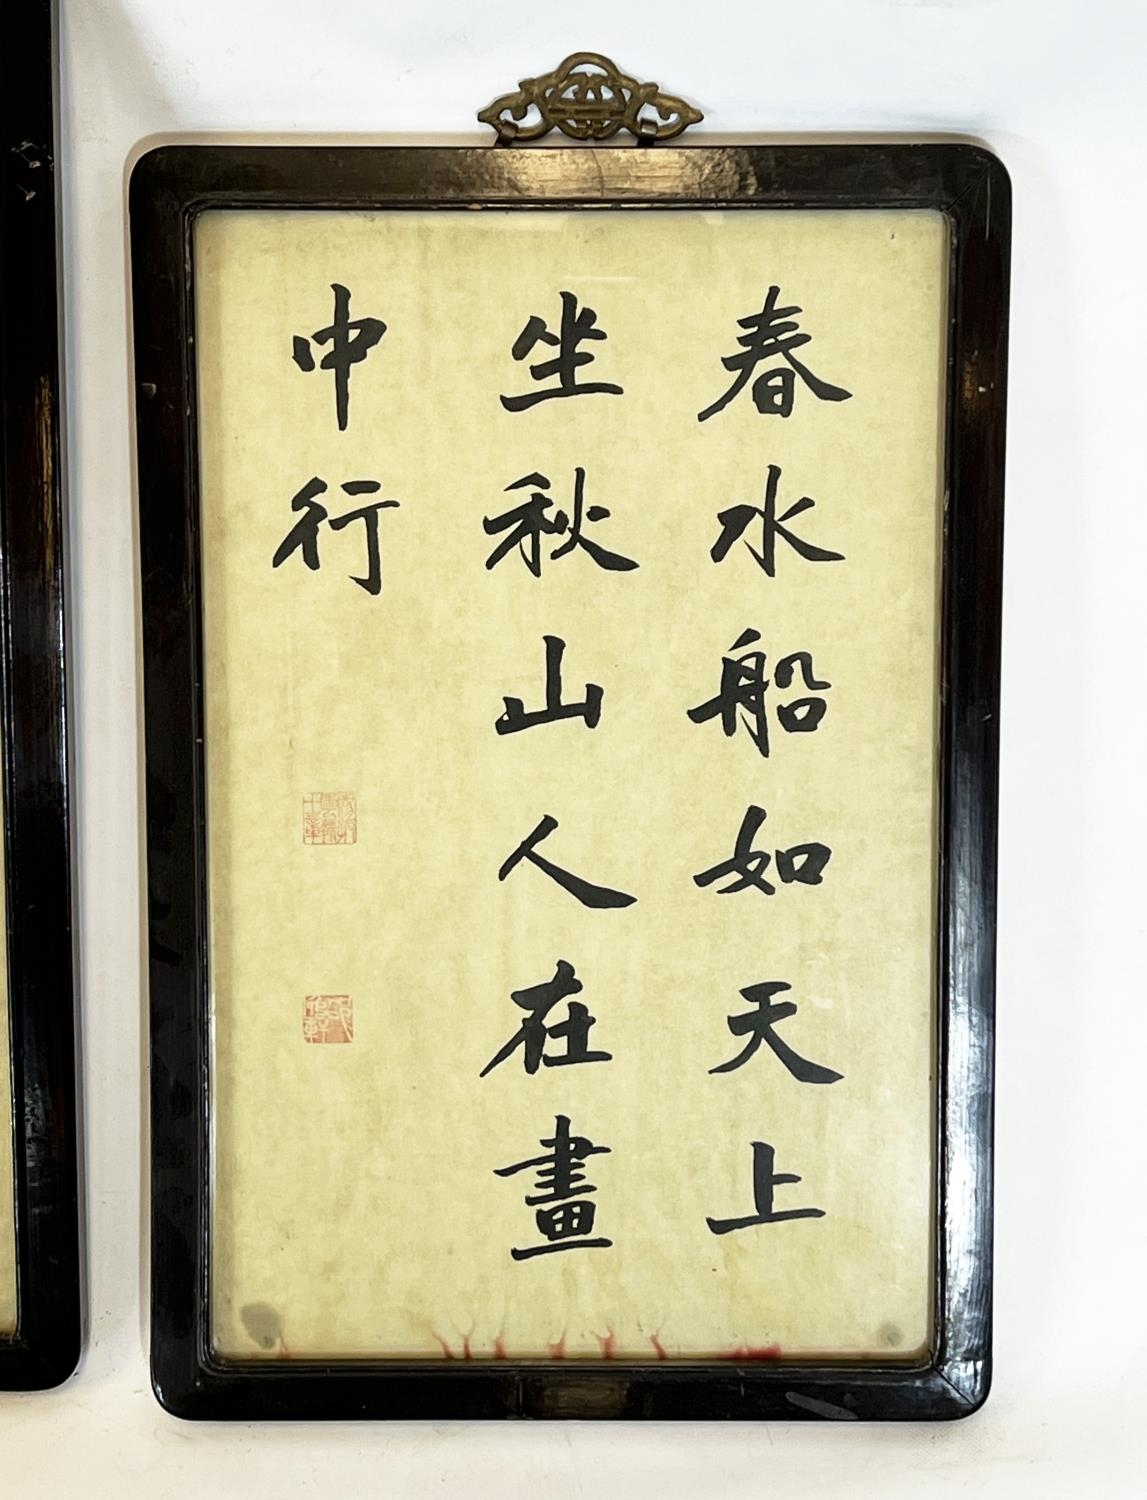 春水船如天上
坐秋山人在畫
中行